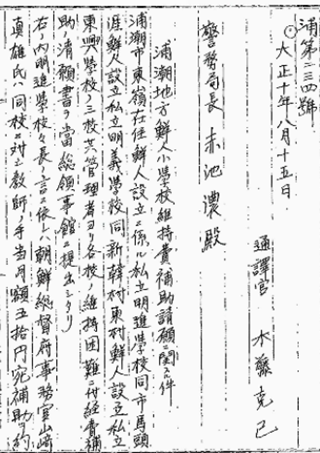 浦第二三四號
大正十年八月十五日
通譯官 木藤克己
警務局長 赤池濃殿
浦潮地方鮮人小學校維持費補助請願ニ関スル件
浦潮市東嶺在住鮮人設立ニ係ル私立明進學校同市馬頭
涯鮮人設立私立明義學校同新韓村東村鮮人設立私立
東興學校ノ三校共管理者ヨリ各校ノ維持困難ニ付経費補
助ノ請願書ヲ當総領事館ニ提出シタリ
右ノ内明進學校々長ノ言ニ依レハ朝鮮総督府事務官山崎
真雄氏ハ同校ニ対シ教師ノ手当月額五拾円宛補助ヲ約